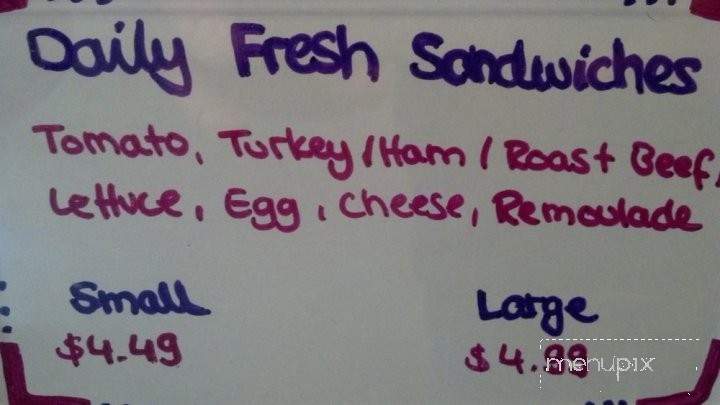 Daily Fresh Sandwiches
Tomato, Turkey/Ham/Roast Beef,
Lettuce, Egg, Cheese, Remoulade
Small Large
$4.49
menupix